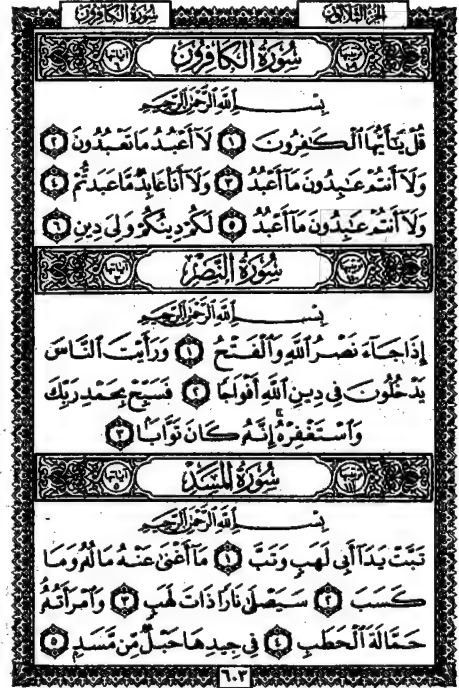 سُورَةُ الكَافِرُونَ الجزء الثلاثون
سُورَةُ الكَافِرُونَ
بِسْمِ ٱللَّهِ ٱلرَّحْمَٰنِ ٱلرَّحِيمِ
قُلْ يَٰٓأَيُّهَا ٱلْكَٰفِرُونَ ١ لَآ أَعْبُدُ مَا تَعْبُدُونَ ٢
وَلَآ أَنتُمْ عَٰبِدُونَ مَآ أَعْبُدُ ٣ وَلَآ أَنَا۠ عَابِدٌ مَّا عَبَدتُّمْ ٤
وَلَآ أَنتُمْ عَٰبِدُونَ مَآ أَعْبُدُ ٥ لَكُمْ دِينُكُمْ وَلِيَ دِينِ ٦
سُورَةُ النَّصْرِ
بِسْمِ ٱللَّهِ ٱلرَّحْمَٰنِ ٱلرَّحِيمِ
إِذَا جَآءَ نَصْرُ ٱللَّهِ وَٱلْفَتْحُ ١ وَرَأَيْتَ ٱلنَّاسَ
يَدْخُلُونَ فِى دِينِ ٱللَّهِ أَفْوَاجًا ٢ فَسَبِّحْ بِحَمْدِ رَبِّكَ
وَٱسْتَغْفِرْهُ ۚ إِنَّهُۥ كَانَ تَوَّابًۢا ٣
سُورَةُ المَسَدِ
بِسْمِ ٱللَّهِ ٱلرَّحْمَٰنِ ٱلرَّحِيمِ
تَبَّتْ يَدَآ أَبِى لَهَبٍ وَتَبَّ ١ مَآ أَغْنَىٰ عَنْهُ مَالُهُۥ وَمَا
كَسَبَ ٢ سَيَصْلَىٰ نَارًا ذَاتَ لَهَبٍ ٣ وَٱمْرَأَتُهُۥ
حَمَّالَةَ ٱلْحَطَبِ ٤ فِى جِيدِهَا حَبْلٌ مِّن مَّسَدٍۭ ٥
٦٠٣